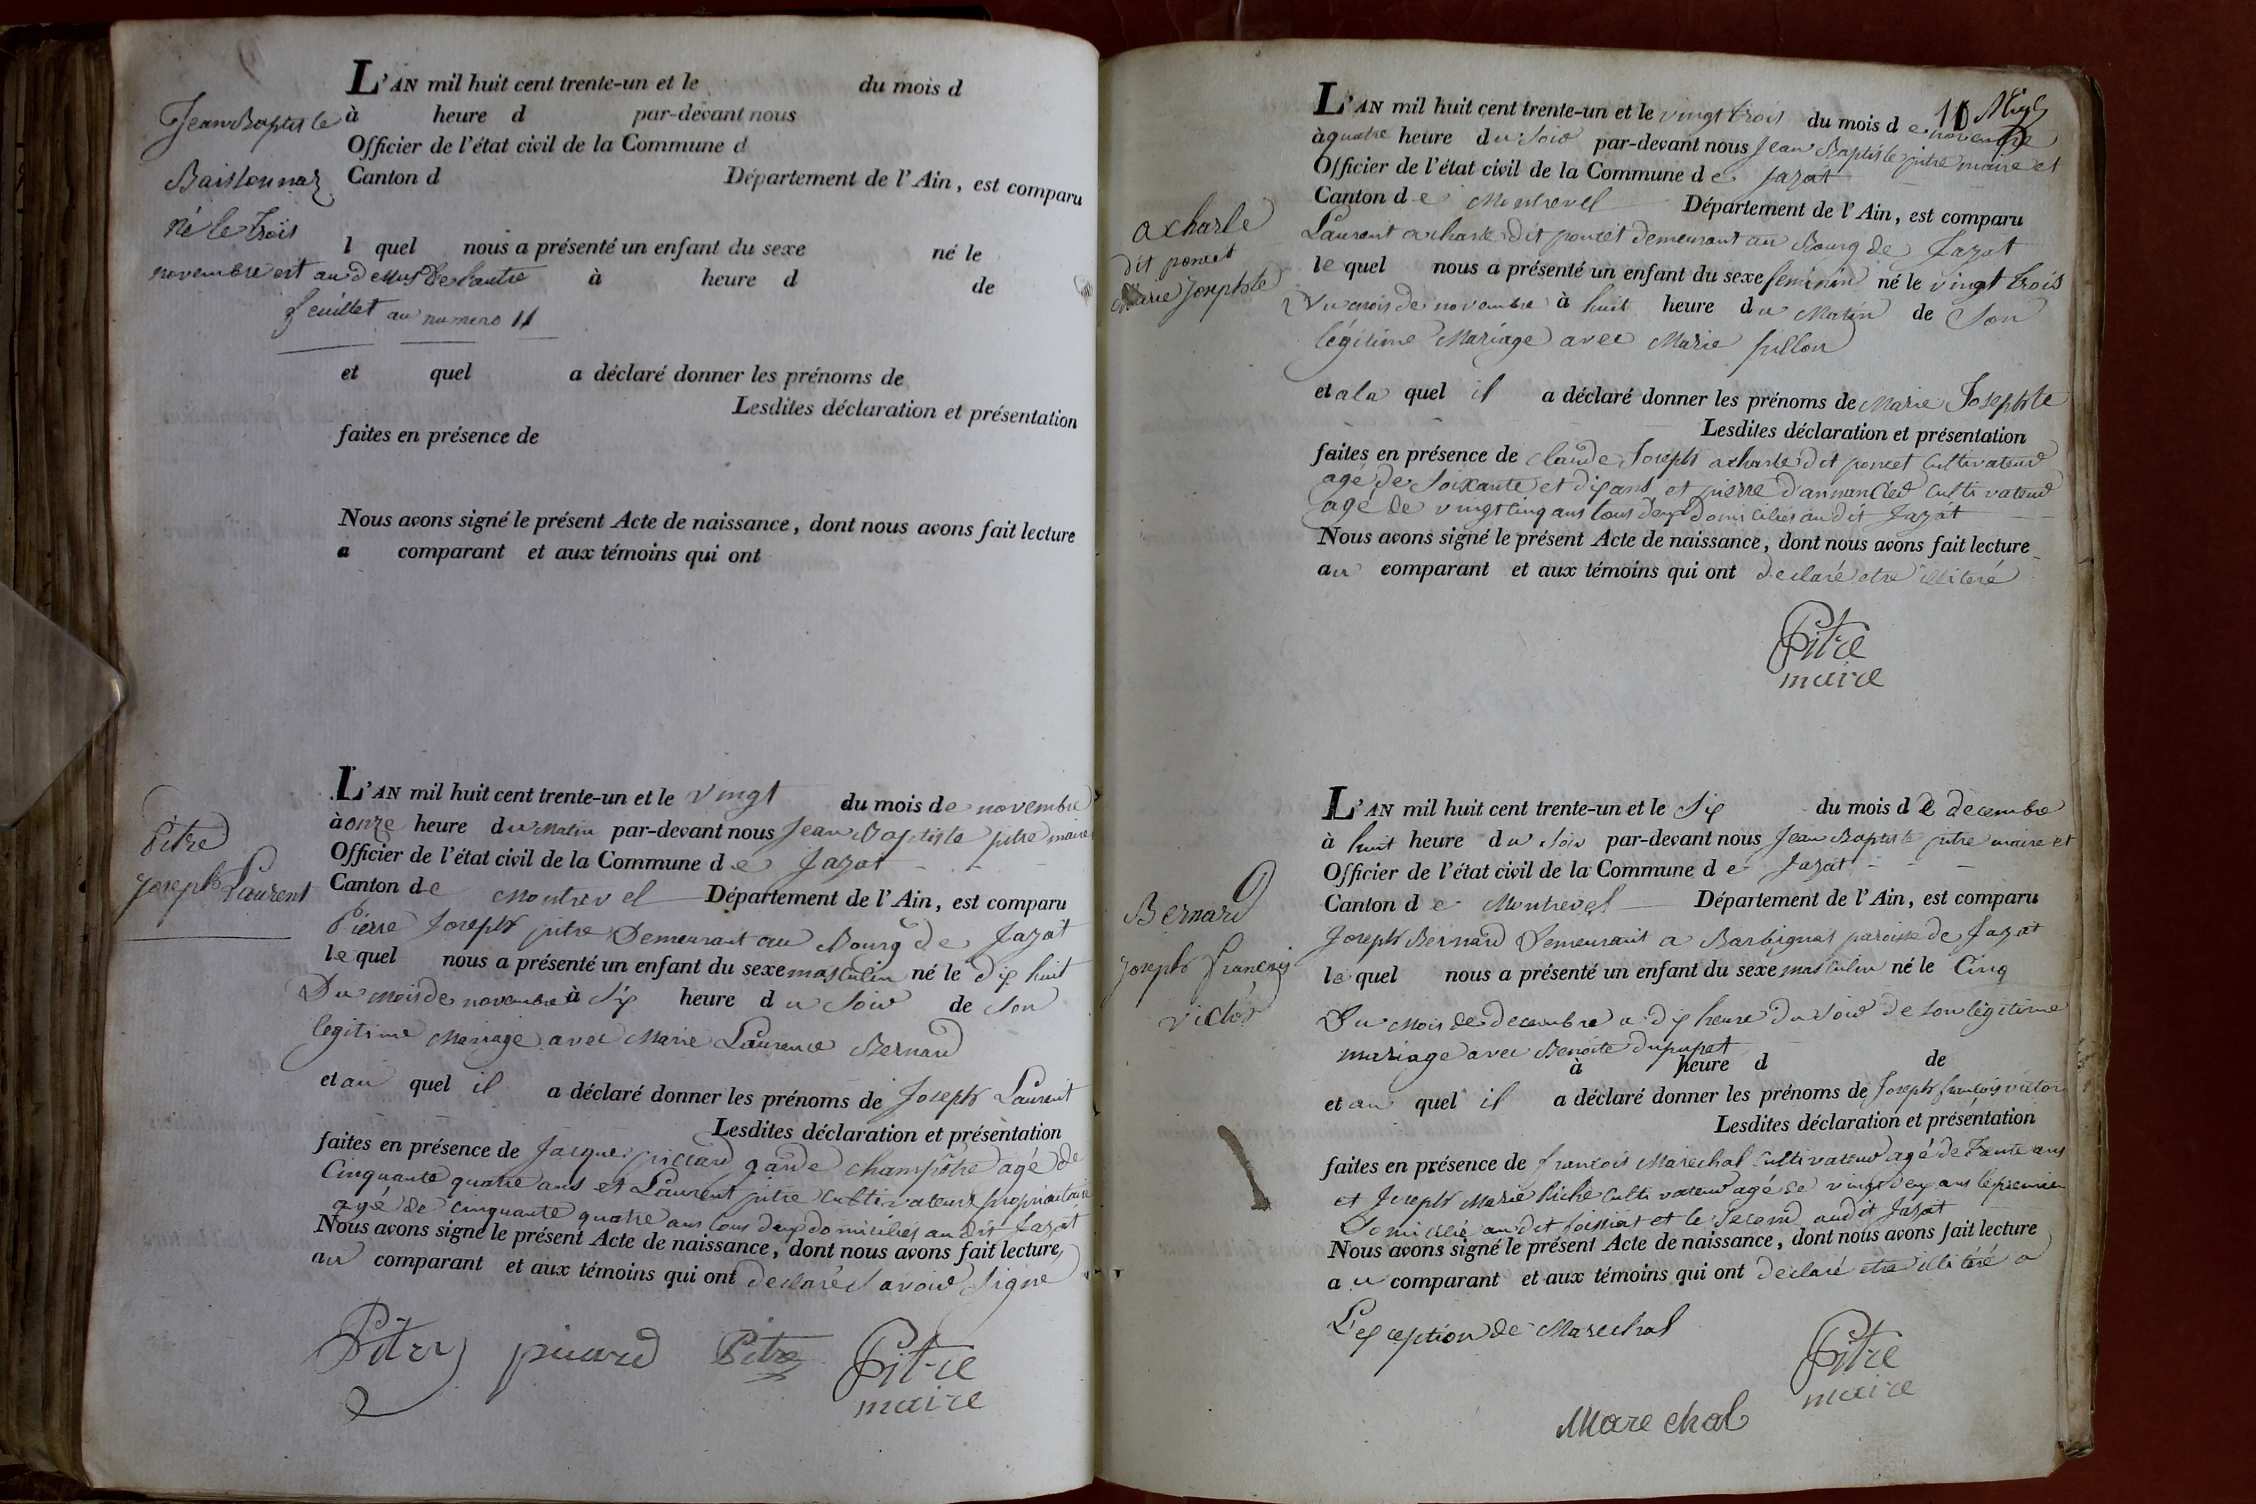 L'AN mil huit cent trente-un et le du mois d
à heure d par-devant nous
Officier de l'état civil de la Commune d
Canton d Département de l'Ain, est comparu
l quel nous a présenté un enfant du sexe né le
à heure d de
et quel a déclaré donner les prénoms de
Lesdites déclaration et présentation
faites en présence de
Nous avons signé le présent Acte de naissance, dont nous avons fait lecture
a comparant et aux témoins qui ont
Jean Baptiste
né le trois
novembre est au dessus de l'autre
feuillet au numero 11
Pitre
Joseph Laurent
L'AN mil huit cent trente-un et le vingt du mois de novembre
à onze heure du matin par-devant nous Jean Baptiste pitre maire
Officier de l'état civil de la Commune de Jayat
Canton de Montrevel Département de l'Ain, est comparu
Pierre Joseph pitre Demeurant au Bourg de Jayat
le quel nous a présenté un enfant du sexe masculin né le dix huit
Du mois de novembre à Six heure du Soir de Son
legitime Mariage avec Marie Laurence Bernard
et au quel il a déclaré donner les prénoms de Joseph Laurent
Lesdites déclaration et présentation
faites en présence de Jacque piccard garde champêtre agé de
Cinquante quatre ans et Laurent pitre cultivateur propriaitaire
agé de cinquante quatre ans tous deux domiciliés au dit Jayat
Nous avons signé le présent Acte de naissance, dont nous avons fait lecture
au comparant et aux témoins qui ont declaré Savoir Signe
Pitre picard Pitre Pitre
maire
11
L'AN mil huit cent trente-un et le vingt trois du mois de novembre
à quatre heure du Soir par-devant nous Jean Baptiste pitre maire et
Officier de l'état civil de la Commune de Jayat
Canton de Montrevel Département de l'Ain, est comparu
Laurent acharle dit poncet demeurant au Bourg de Jayat
le quel nous a présenté un enfant du sexe feminin né le vingt trois
Du mois de novembre à huit heure du Matin de Son
légitime Mariage avec Marie
et a la quel il a déclaré donner les prénoms de Marie Josephte
Lesdites déclaration et présentation
faites en présence de claude Joseph acharle dit poncet Cultivateur
agé de Soixante et dix ans et pierre cultivateur
agé de vingt cinq ans tous deux domiciliés au dit Jayat
Nous avons signé le présent Acte de naissance, dont nous avons fait lecture
au comparant et aux témoins qui ont declaré etre illiteré
Pitre
maire
acharle
dit poncet
Marie Josephte
Bernard
Joseph françois
victor
L'AN mil huit cent trente-un et le Six du mois de decembre
à huit heure du Soir par-devant nous Jean Baptiste pitre maire et
Officier de l'état civil de la Commune de Jayat
Canton de Montrevel Département de l'Ain, est comparu
Joseph Bernard Demeurant a Barbignat paroisse de Jayat
le quel nous a présenté un enfant du sexe masculin né le Cinq
Du Mois de decembre a dix heure Du Soir de Son légitime
mariage avec Benoite dupupet
à heure d de
et au quel il a déclaré donner les prénoms de Joseph françois victor
Lesdites déclaration et présentation
faites en présence de françois Marechal Cultivateur agé de trante ans
et Joseph Marie cultivateur agé de vingt deux ans le premier
Domicilié au dit foissiat et le Second au dit Jayat
Nous avons signé le présent Acte de naissance, dont nous avons fait lecture
au comparant et aux témoins qui ont declaré etre illitéré a
L'exception de Marechal
Pitre
maire
Marechal